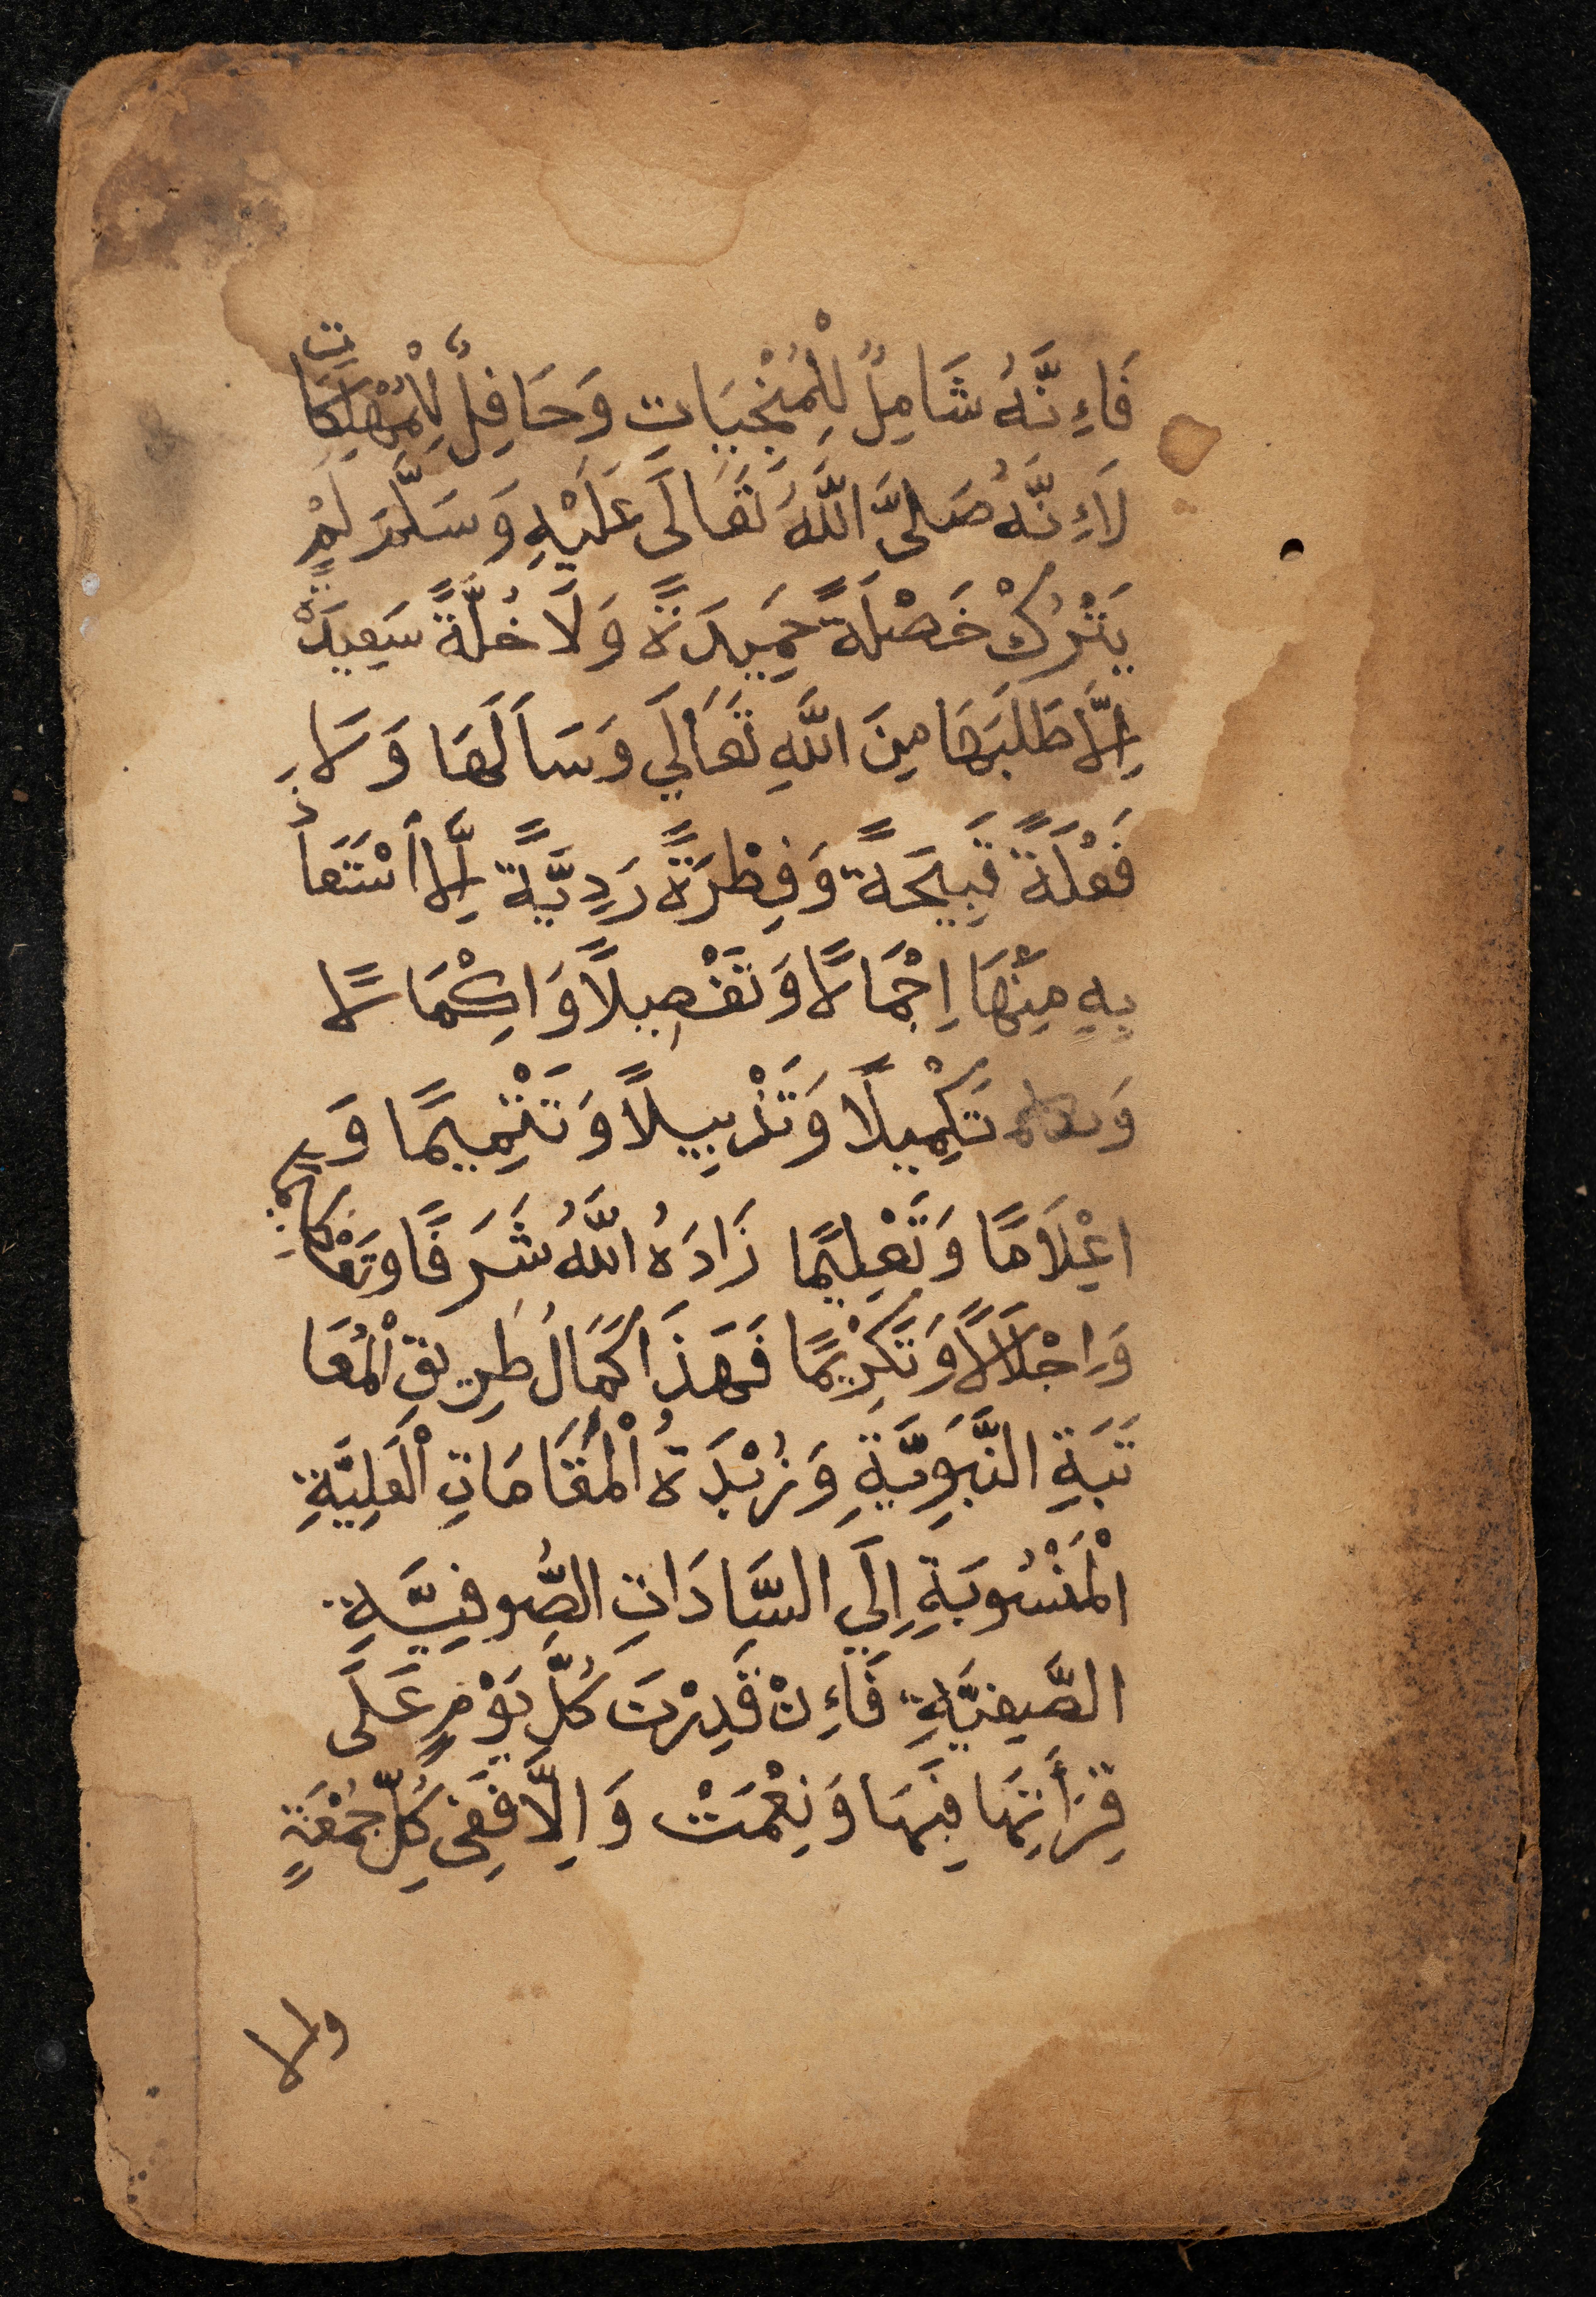 فَاِءنَّهُ شَامِلٌ لِلْمُنْجِيَاتِ وَحَافِلٌ لِلْمُهْلِكَاتِ
لَاِءنَّهُ صَلَّى اللَّهُ تَعَالَى عَلَيْهِ وَسَلَّمَ لَمْ
يَتْرُكْ خَصْلَةً حَمِيدَةً وَلَا خُلَّةً سَعِيدَةً
اِلَّا طَلَبَهَا مِنَ اللَّهِ تَعَالَي وَسَاَلَهَا وَلَا
فَعْلَةً قَبِيحَةً وَفِطْرَةً رَدِيَّةً اِلَّا اسْتَعَاذَ
بِهِ مِنْهَا اِجْمَالًا وَتَفْصِيلًا وَاكِْمَالًا
وَ تَكْمِيلًا وَتَذْبِيلًا وَتَتْمِيمًا وَ
اعْلَامًا وَتَعْلِيمًا زَادَهُ اللَّهُ شَرَفًا وَتَعْظِيمًا
وَاِجْلَالًا وَتَكْرِيمًا فَهَذَا كَمَالُ طَرِيقِ الْمُعَا
تَبَةِ النَّبَوِيَّةِ وَزُبْدَةُ الْمُقَامَاتِ الْعَلِيَّةِ
الْمَنْسُوبَةِ اِلَي السَّادَاتِ الصُّوفِيَّةِ
الصَّفِيَّةِ فَاِءنْ قَدِرْتَ كُلَّ يَوْمٍ عَلَى
قِرَأَتِهَا فَبِهَا وَنِعْمَتْ وَاِلَّا فَفِى كُلِّ جُمْعَةٍ
والا